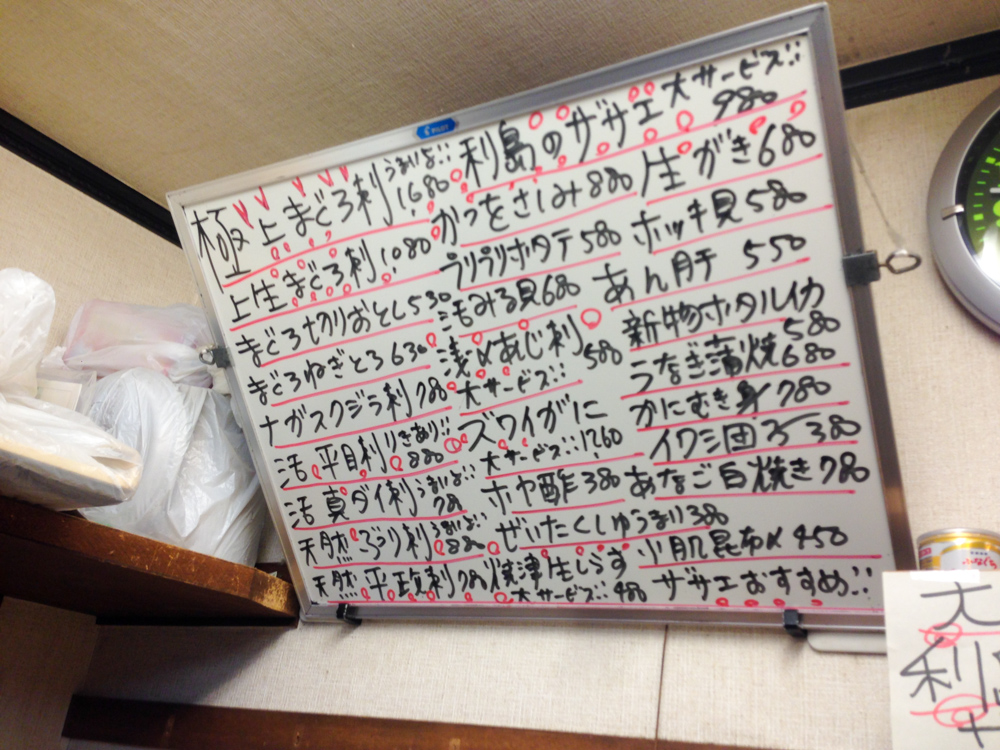 極上まぐろ刺 うまいよ!! 1,680
上生まぐろ刺 1,080
まぐろ切りおとし 530
まぐろねぎとろ 630
ナガスクジラ刺 780
活平目刺 えんがわあり!! 880
活真ダイ刺 うまいよ!! 780
天然ぶり刺 うまいよ!! 880
天然平政刺 780
利島のサザエ 大サービス!! 980
かつをさしみ 880
プリプリホタテ 580
活みる貝 680
浅〆あじ刺 580
大サービス!!
ズワイガニ
大サービス!! 1,260
ホヤ酢 380
ぜいたくしゅうまい 380
焼津生しらす
大サービス!! 480
生がき 680
ホッキ貝 580
あん肝 550
新物ホタルイカ 580
うなぎ蒲焼 680
かにむき身 780
イワシ団子 380
あなご白焼き 780
小肌昆布〆 450
サザエおすすめ!!
PILOT
大
利